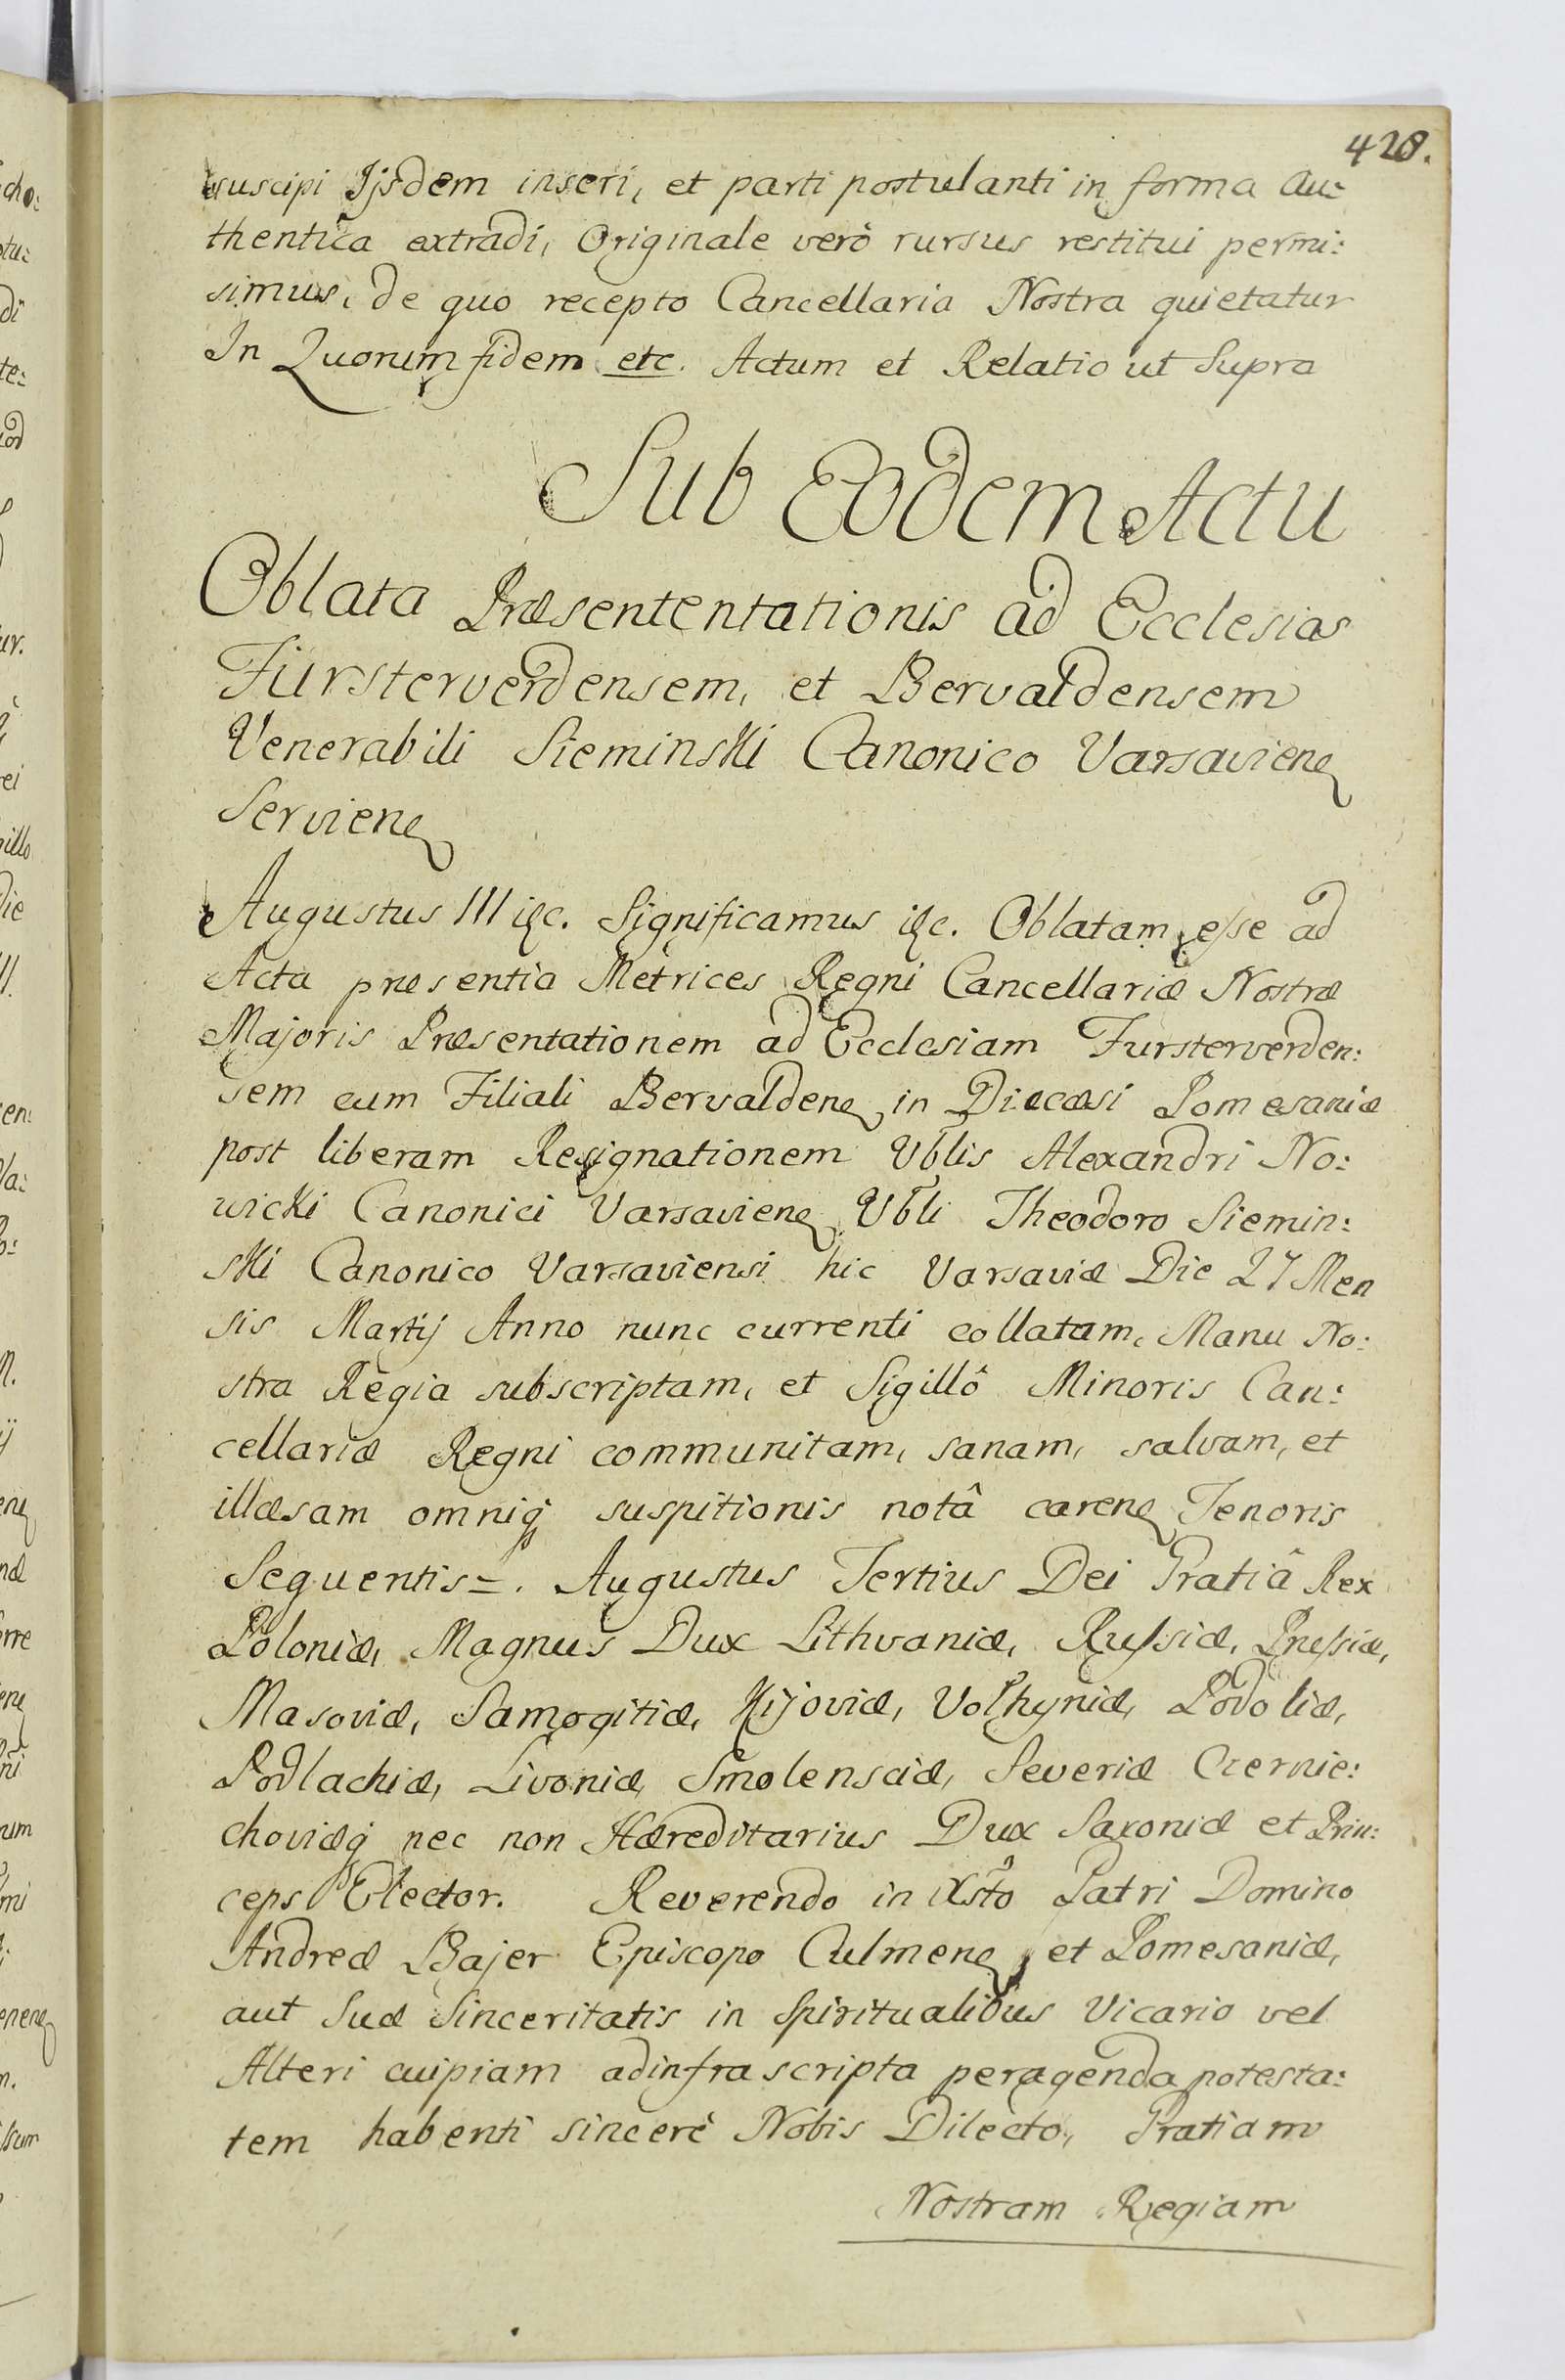 428.
suscipi Ijsdem inseri, et parti postulanti in forma Au:
thentica extradi, Originale verò rursus restitui permi:
simus, de quo recepto Cancellaria Nostra quietatur
In Quorum fidem etc. Actum et Relatio ut Supra
Sub Eodem Actu
Oblata Præsententationis ad Ecclesias
Fursterverdensem, et Bervaldensem
Venerabili Sieminski Canonico Varsavien
Servien
Augustus III etc. Significamus etc. Oblatam esse ad
Acta præsentia Metrices Regni Cancellariæ Nostræ
Majoris Præsentationem ad Ecclesiam Fursterverden:
sem cum Filiali Bervalden in Diæcæsi Pomesaniæ
post liberam Resignationem Vblis Alexandri No:
wicki Canonici Varsavien Vbli Theodoro Siemin:
ski Canonico Varsaviensi hic Varsaviæ Die 27 Men
sis Martij Anno nunc currenti collatam, Manu No:
stra Regia subscriptam, et Sigillô Minoris Can:
cellariæ Regni communitam, sanam, salvam, et
illæsam omniq suspitionis notâ caren Tenoris
Sequentis =. Augustus Tertius Dei Gratiâ Rex
Poloniæ, Magnus Dux Lithvaniæ, Russiæ, Prussiæ,
Masoviæ, Samogitiæ, Kijoviæ, Volhyniæ, Podoliæ,
Podlachiæ, Livoniæ, Smolensciæ, Severiæ Czernie:
choviæq nec non Hæreditarius Dux Saxoniæ et Prin:
ceps Elector. Reverendo in Xsto Patri Domino
Andreæ Bajer Episcopo Culmen, et Pomesaniæ,
aut Suæ Sinceritatis in Spiritualibus Vicario vel
Alteri cuipiam adinfra scripta peragenda potesta:
tem habenti sincerè Nobis Dilecto, Gratiam
Nostram Regiam